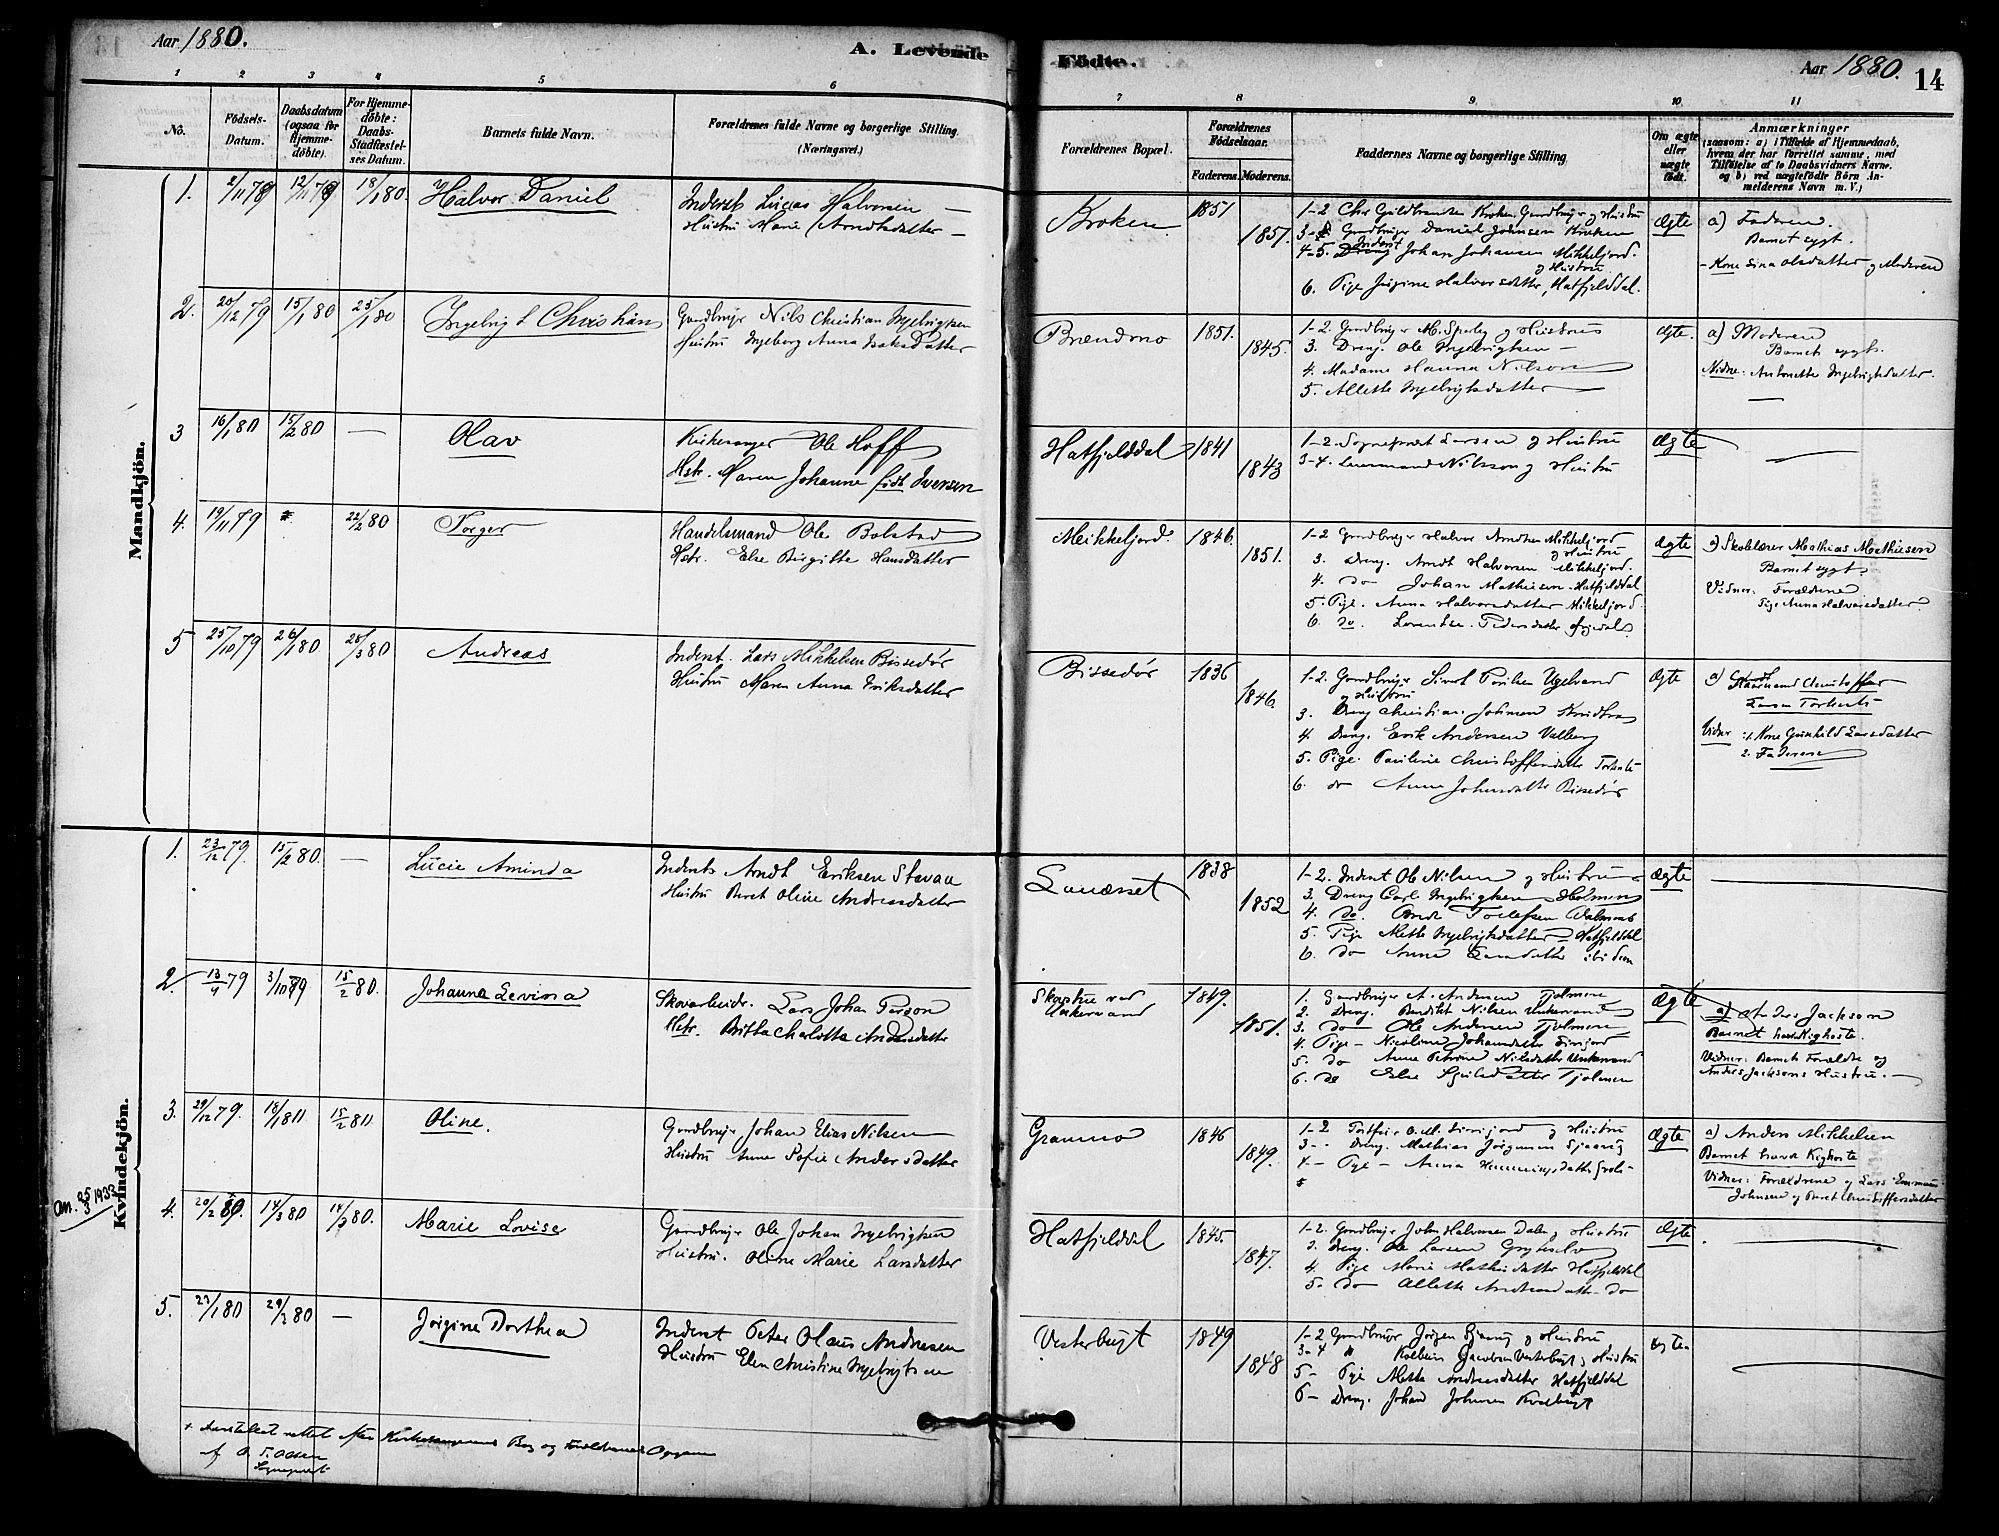 Aar 1880.
A. Levende
Födte.
Aar 1880.
14
1 2 3 4 5 6
7 8 9 10 11
No.
Födsels-Datum.
Daabsdatum (ogsaa for Hjemme-döbte).
For Hjemme-döbte: Daabs-Stadfæstelses Datum.
Barnets fulde Navn.
Forældrenes fulde Navne og borgerlige Stilling. (Næringsvei.)
Forældrenes Bopæl.
Forældrenes Födselsaar.
Faderens. Moderens.
Faddernes Navne og borgerlige Stilling.
Om ægte eller uægte födt.
Anmærkninger
(saasom: a) i Tilfælde af Hjemmedaab, hvem der har forrettet samme, med Tilföielse af to Daabsvidners Navne, og b) ved uægtefödte Börn Anmelderens Navn m. V.)
Mandkjön.
1. 2/11 79 12/11 79 18/1 80. Halvor Daniel
Inderst Lucas Halvorsen
Hustru Marie Arndtsdatter
Kroken 1851 1857.
1-2 Chr Guldbrandsen Kroken, Gaardbruger og Hustru
3- Gaardbruger Daniel Johnsen Kroken
4-5. Inderst Johan Johansen Mikkeljord. og Hustru
6. Pige Jørgine Halvorsdatter, Hatfjelddal.
Ægte
a) Faderen.
Barnet sygt.
- Kone Sina Olsdatter og Moderen
2. 20/12 79 15/1 80 25/1 80 Ingebrigt Christian
Gaardbruger Nils Christian Ingebrigtsen
Hustru Ingeborg Anna Isaksdatter
Brændmo 1851. 1845.
1-2. Gaardbruger M. Sperley og Hustru
3. Dreng. Ole Ingebrigtsen
4. Madame Hanna Nilsson
5. Allette Ingebrigtsdatter
Ægte.
a) Moderen
Barnet sygt.
Vidne: Antonette Ingebrigtsdatter.
3 16/1 80 15/2 80 — Olav
Kirkesanger Ole Hoff
Hstr. Maren Johanne født Iversen
Hatfjelddal 1841 1843
1-2. Sognepræst Larsen og Hustru
3-4. Lensmand Nilsson og Hustru
Ægte
4. 19/11 79 22/2 80 Torger
Handelsmand Ole Bolstad
Hstr. Else Birgitte Hansdatter
Mikkeljord. 1846. 1851.
1-2 Gaardbruger Halvor Arndtsen Mikkeljord og Hustru
3. Dreng. Arndt Halvorsen Mikkeljord.
4. do Johan Mathisen Hatfjelddal
5. Pige. Anna Halvorsdatter Mikkeljord.
6. do. Lorentse Pedersdatter
Ægte
a) Skolelærer Mathias Mathisen
Barnet sygt.
Vidner: Forældrene
Pige Anna Halvorsdatter.
5 25/10 79 26/1 80 28/3 80 Andreas
Inderst. Lars Mikkelsen Bissedør
Hustru Maren Anna Eriksdatter
Bissedør 1836 1846.
1-2. Gaardbruger Sivert Paulsen Ugelvand og Hustru
3. Dreng Christian Johnsen
4 Dreng. Erik Andersen Velberg
5. Pige. Pauline Christoffersdatter
6. do Anne Johnsdatter Bissedør
Ægte
a) Christoffer Larsen
Vidner: 1. Kone Gunhild Larsdatter
2. Faderen
Kvindekjön.
1. 23/12 79. 15/2 80. — Lucie Aminda
Inderst Arndt Eriksen Stavau
Hustru Beret Oline Andreasdatter
1838 1852
1-2. Inderst Ole Nilsen og Hustru
3. Dreng Carl Ingebrigtsen Holmen
4. do.
5. Pige Mette Ingebrigtsdatter Hatfjelddal
6. do Anne Larsdatter ibidem
Ægte
2. 13/4 79 3/10 79 15/2 80. Johanna Levina
Skovarbeidr. Lars Johan Person
Hstr. Britta Charlotta Andersdatter
Skovstue ved Unkervand 1849. 1851.
1. Gaardbruger A. Andersen Tjolmen
2. Dreng. Benedikt Nilsen Unkervand
3. do Ole Andersen Tjolmen
4. Pige - Nicoline Johannsdatter
5. do Anne Petrine Nilsdatter Unkervand
6. do Else Tjolmen
Ægte
a) Anders Jackson
Barnet havde Kighoste.
Vidner: Barnets Forældre og
Anders Jacksons Hustru.
3. 29/12 79. 18/1 80 15/2 80 Oline.
Gaardbruger Johan Elias Nilsen
Hustru Anne Sofie Andersdatter
Granmo 1846 1849.
3- Dreng. Mathias Jørgensen Sjaavig
4- Pige - Anna Hemmingsdatter
5
Ægte
a) Anders Mikkelsen
Barnet havde Kighoste
Vidner: Forældrene og Lars Emmanuel
Johnsen og Beret Christoffersdatter
an. 25/3 1933
4. 29/2 80. 14/3 80 14/3 80. Marie Lovise
Gaardbruger Ole Johan Ingebrigtsen
Hustru. Oline Marie Larsdatter
Hatfjelddal 1845. 1847.
1-2. Gaardbruger John Halvorsen Dalen og Hustru
3. Dreng. Ole Larsen Grubselv
4. Pige Marie Mathisdatter Hatfjelddal
5. do Allette Andreasdatter do
Ægte
5. 23/1 80 29/2 80 — Jørgine Dorthea
Inderst Peter Olaus Andresen
Hustru Elen Christine Ingebrigtsen
Vesterbugt 1849 1848
1-2 Gaardbruger Jørgen Sjaavig og Hustru
3-4 " Kolbein Jacobsen Vesterbugt og Hustru
5- Pige Mette Andreasdatter Hatfjelddal
6- Dreng. Johan Johnsen
Ægte
+ Aarstallet rettet efter Kirkesangerens Bog og Forældrenes Opgave
af O. T. Olsen
Sognepræst